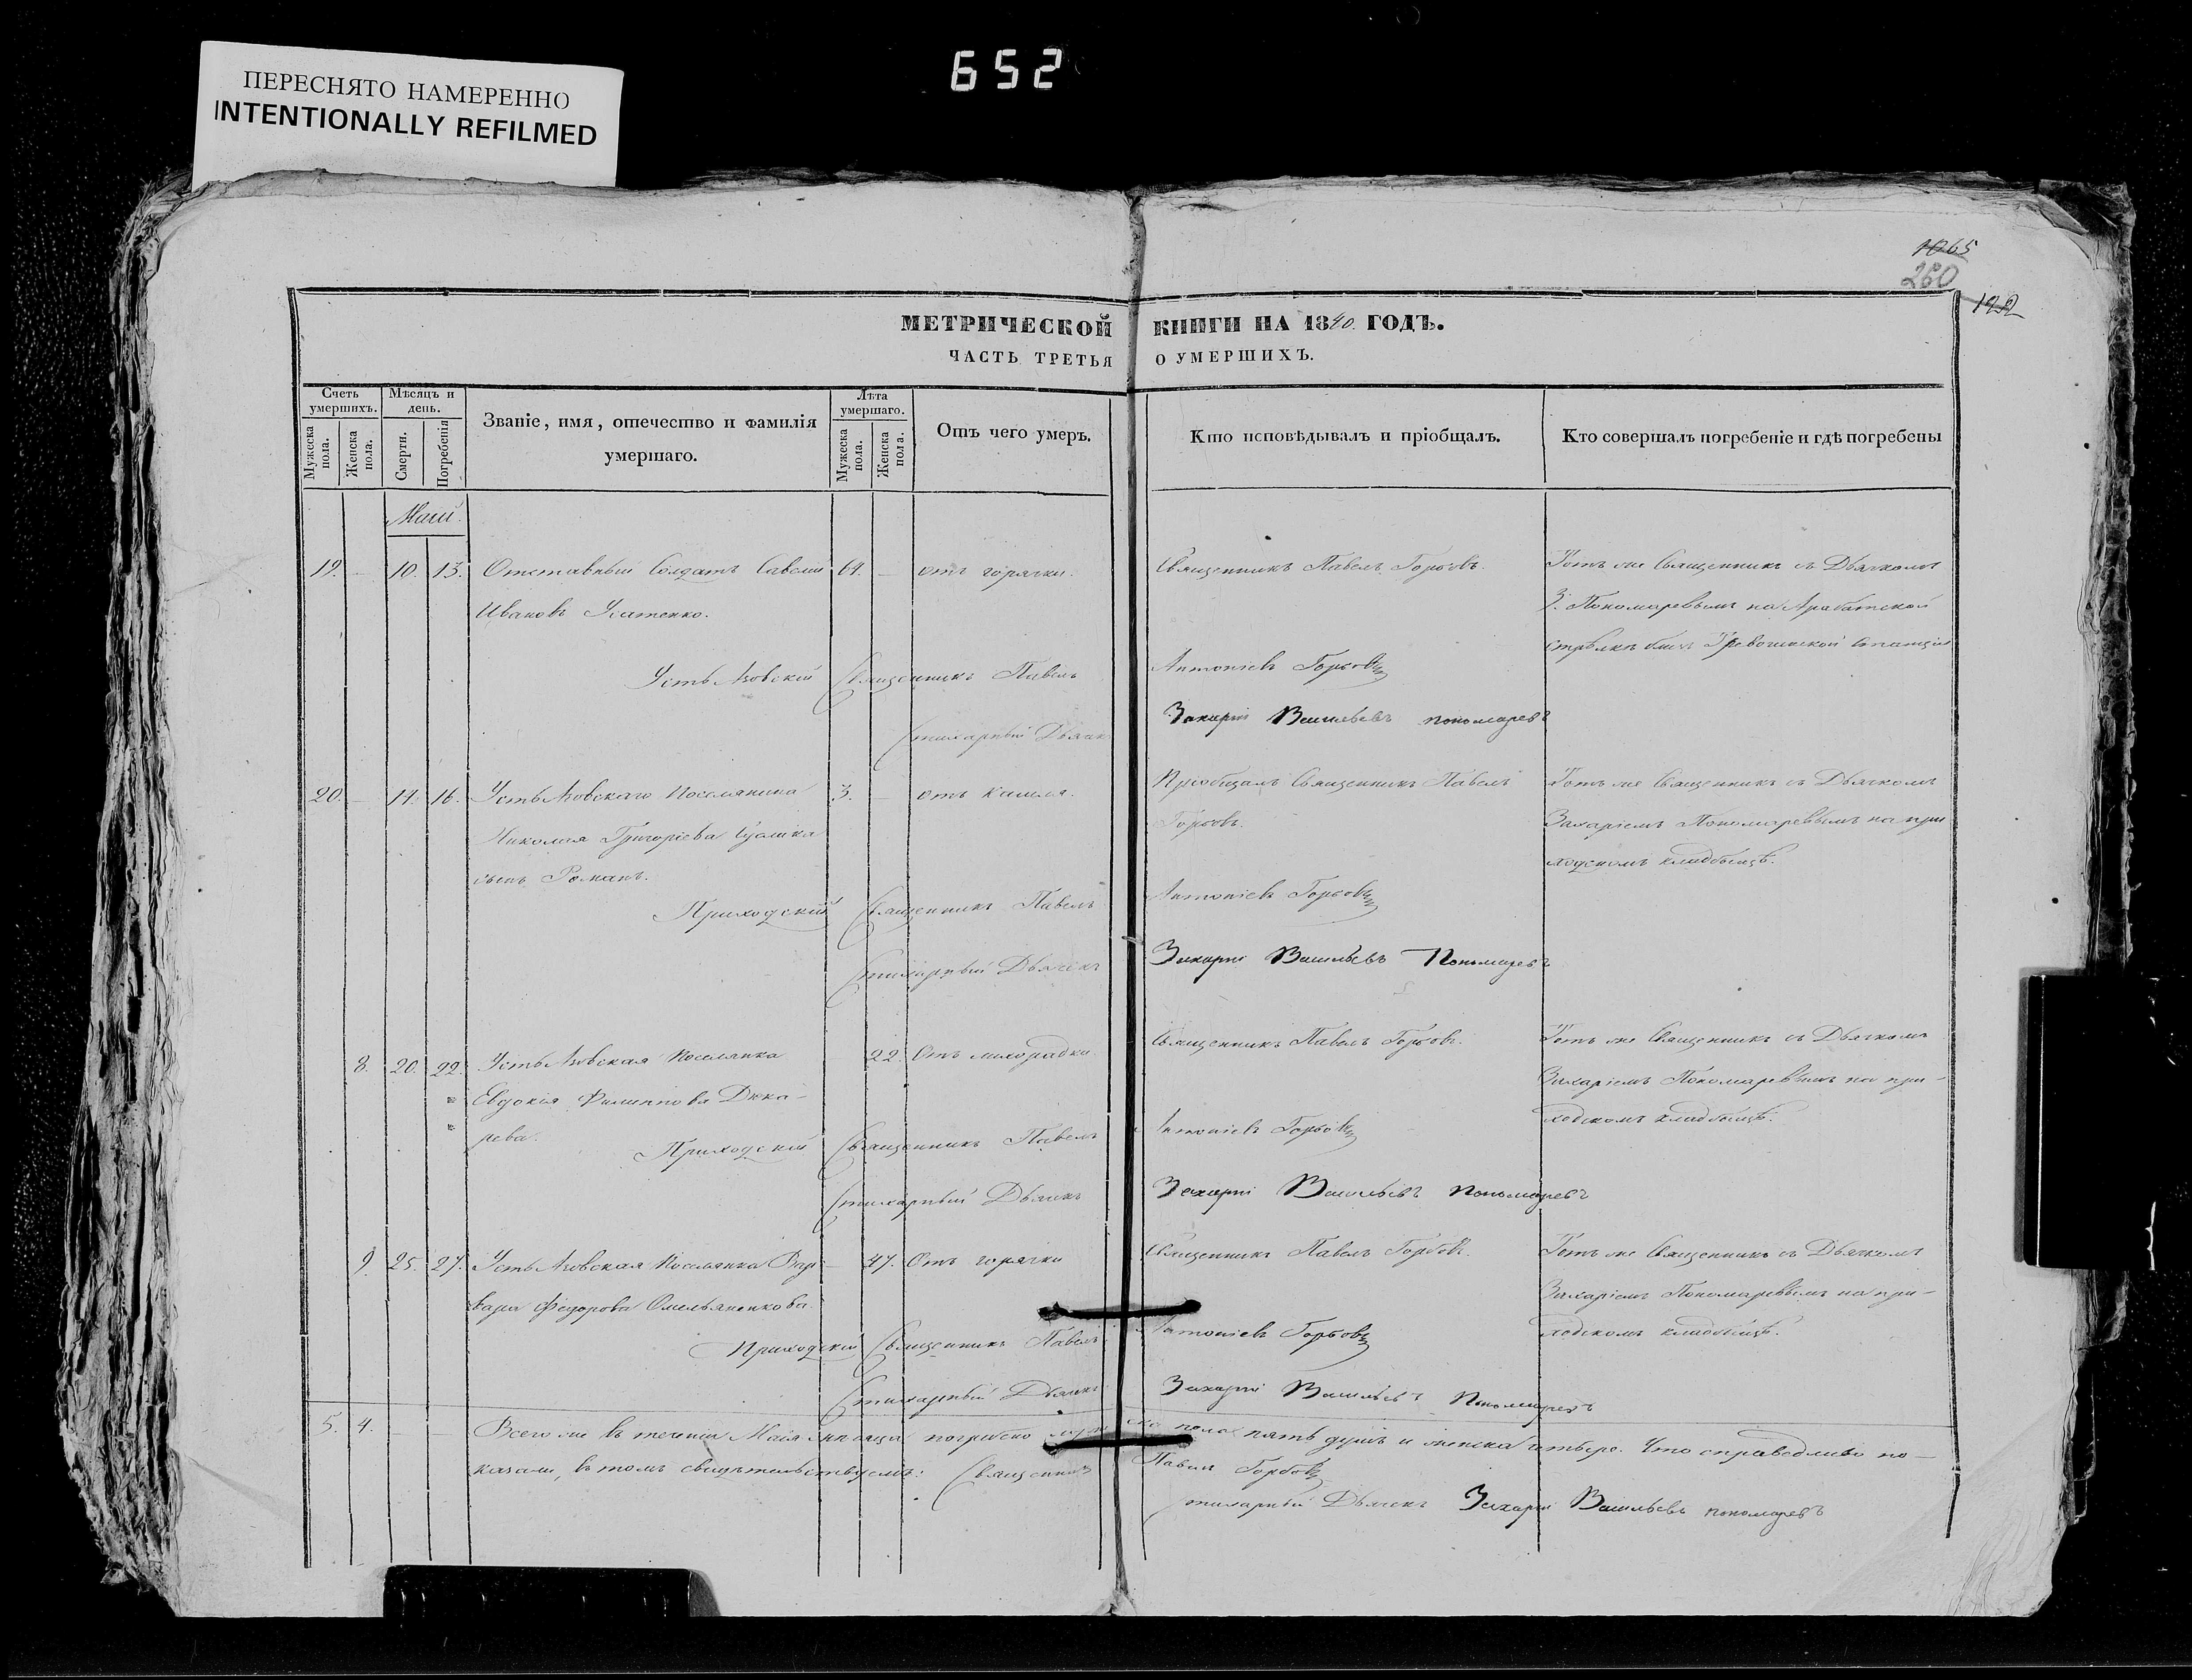 652
ПЕРЕСНЯТО НАМЕРЕННО
INTENTIONALLY REFILMED
1065
260
122
МЕТРИЧЕСКОЙ КНИГИ НА 1840 ГОДЪ.
ЧАСТЬ ТРЕТЬЯ О УМЕРШИХЪ.
Счетъ умершихъ.
Мужеска пола.
Женска пола.
Мѣсяцъ и день.
Смерти.
Погребенія
Званіе, имя, отечество и фамилія умершаго.
Лѣта умершаго.
Мужеска пола.
Женска пола.
Отъ чего умеръ.
Кто исповѣдывалъ и пріобщалъ.
Кто совершалъ погребеніе и гдѣ погребены
Маій.
19. — 10. 13. Отставный Солдатъ Савелій 64. — отъ горячки. Священникъ Павелъ Горбовъ. Тотъ же Священникъ съ Дьячкомъ
Ивановъ Усатенко. З. Пономаревымъ на Арабатской
стрѣлкѣ близъ станціи
Усть Азовскій Священникъ Павелъ Антоніевъ Горбовъ
Стихарный Дьячекъ Захарій Васильевъ Пономаревъ
20. — 14. 16. Усть Азовскаго Поселянина 3. — отъ кашля. Пріобщалъ Священникъ Павелъ Тотъ же Священникъ съ Дьячкомъ
Николая Григоріева Горбовъ. Захаріемъ Пономаревымъ на при
сынъ Романъ. ходскомъ кладбищѣ.
Приходскій Священникъ Павелъ Антоніевъ Горбовъ
Стихарный Дьячекъ Захарій Васильевъ Пономаревъ
8. 20. 22. Усть Азовская Поселянка 22. Отъ лихорадки. Священникъ Павелъ Горбовъ. Тотъ же Священникъ съ Дьячкомъ
Евдокія Филиппова Дика- Захаріемъ Пономаревымъ на при-
рева. ходскомъ кладбищѣ.
Приходскій Священникъ Павелъ Антоніевъ Горбовъ
Стихарный Дьячекъ Захарій Васильевъ Пономаревъ
9. 25. 27. Усть Азовская Поселянка Вар- 47. Отъ горячки Священникъ Павелъ Горбовъ. Тотъ же Священникъ съ Дьячкомъ
вара Федорова Омельяненкова. Захаріемъ Пономаревымъ на при-
ходскомъ кладбищѣ.
Приходскій Священникъ Павелъ Антоніевъ Горбовъ
Стихарный Дьячекъ Захарій Васильевъ Пономаревъ
5. 4. Всего же въ теченіи Маія мѣсяца погребено мужеска пола пять душъ и женска четыре. Что справедливо по-
казали, въ томъ свидѣтельствуемъ: Священникъ Павелъ Горбовъ
Стихарный Дьячекъ Захарій Васильевъ Пономаревъ